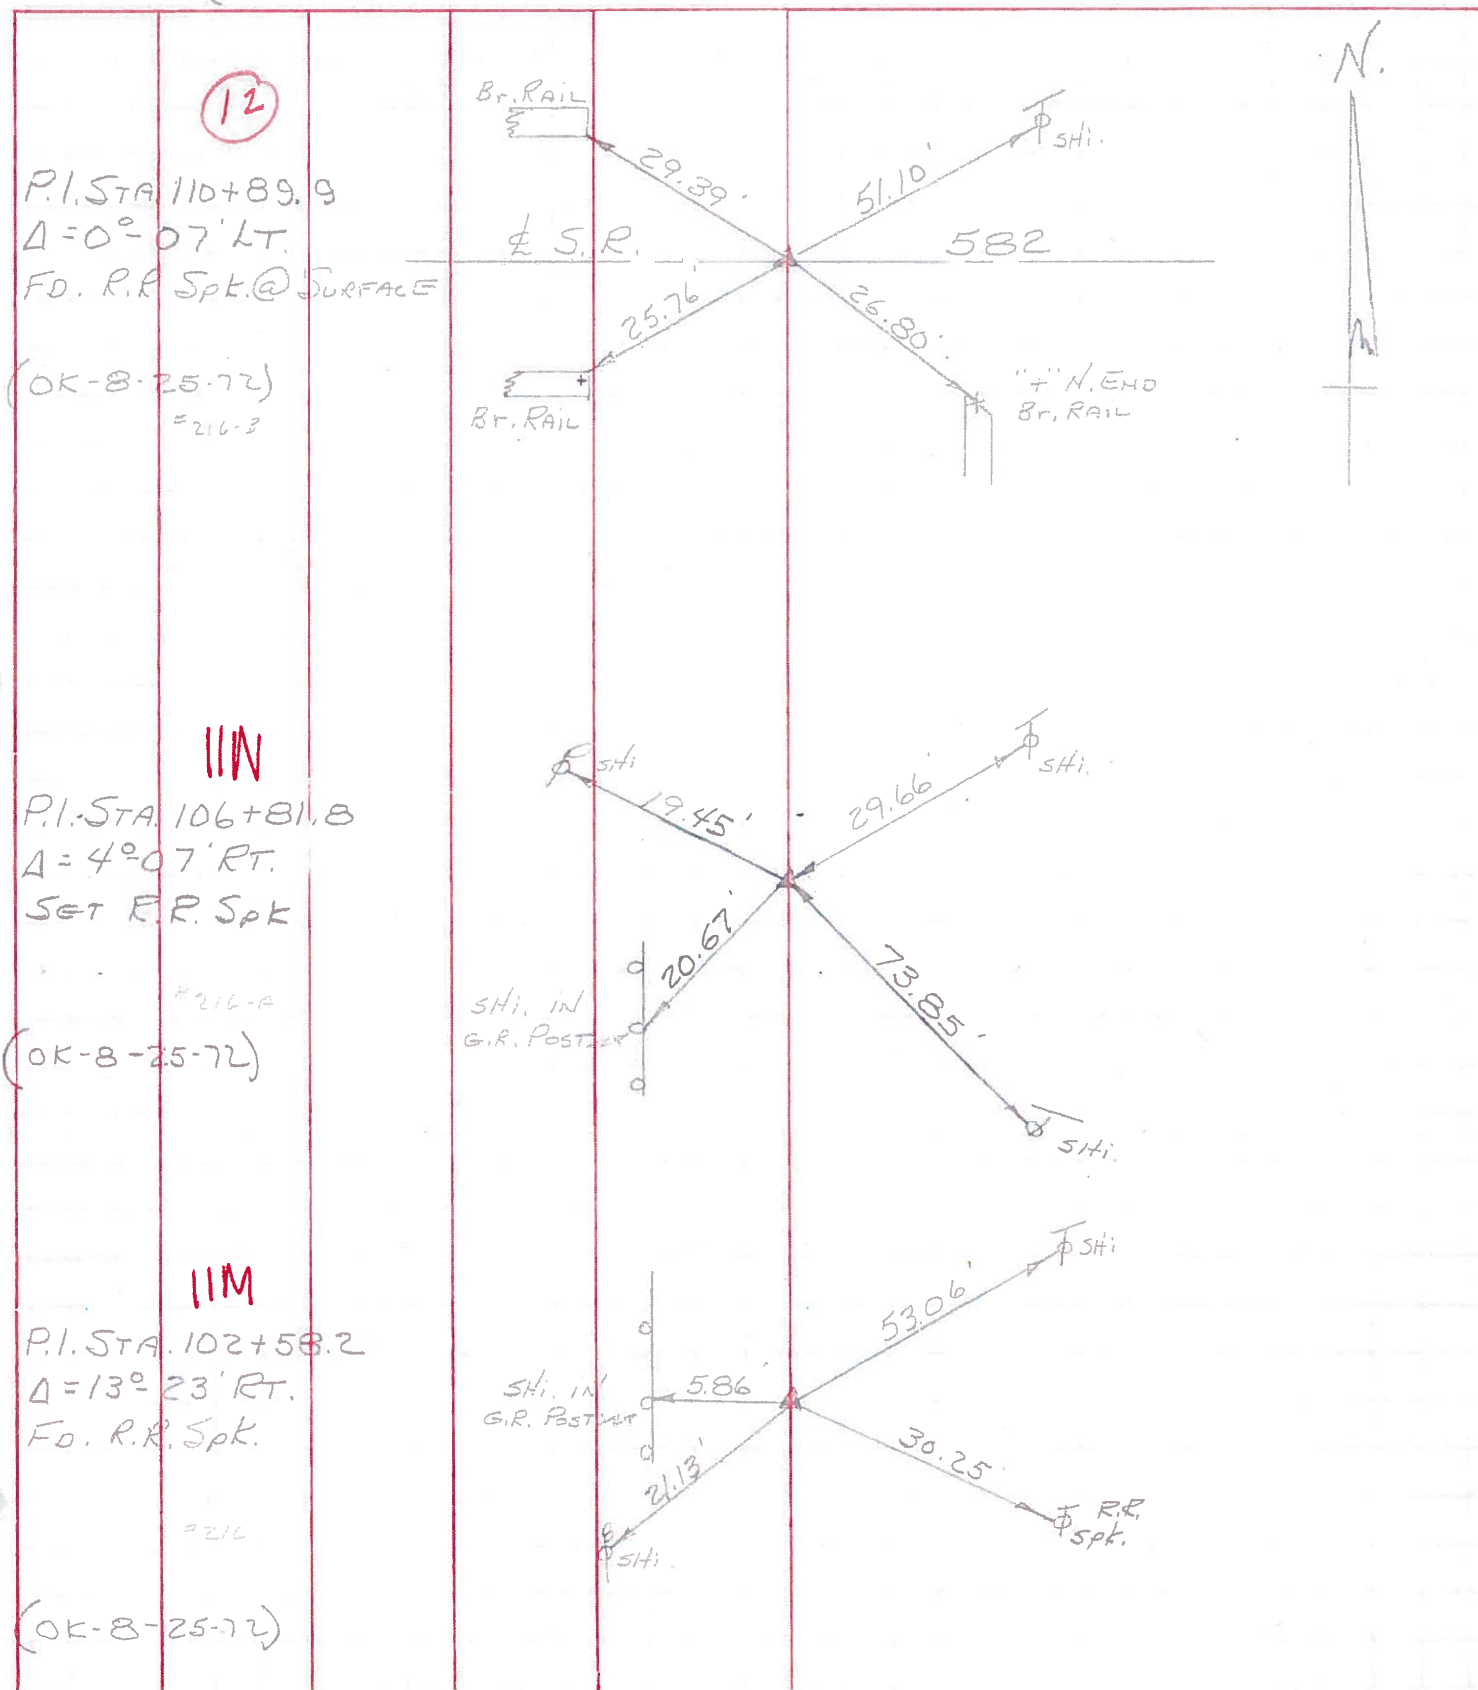 12
P.I. STA. 110+89.9
Δ = 0°-07' LT.
FD. R.R. Spk. @ SURFACE
(OK-8-25-72)
=216-B
Br. RAIL
29.39'
51.10'
SHi.
℄ S.R. 582
25.76'
26.80'
Br. RAIL
"+" N. END
Br. RAIL
N.
11N
P.I. STA. 106+81.8
Δ = 4°-07' RT.
SET R.R. Spk
=216-A
(OK-8-25-72)
SHi
19.45'
29.66'
SHi.
20.67'
SHi. IN
G.R. POST
73.85'
SHi.
11M
P.I. STA. 102+58.2
Δ = 13°-23' RT.
FD. R.R. Spk.
=216
(OK-8-25-72)
SHi
53.06'
SHi. IN
G.R. POST
5.86'
21.13'
30.25'
SHi.
R.R.
Spk.